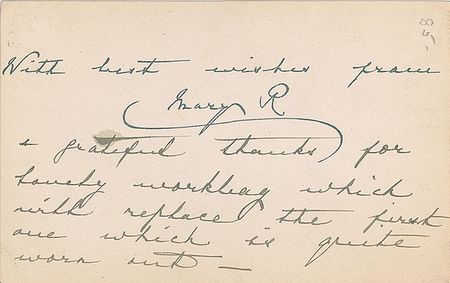 With best wishes from
Mary R
& grateful thanks for
lovely workbag which
will replace the first
one which is quite
worn out —